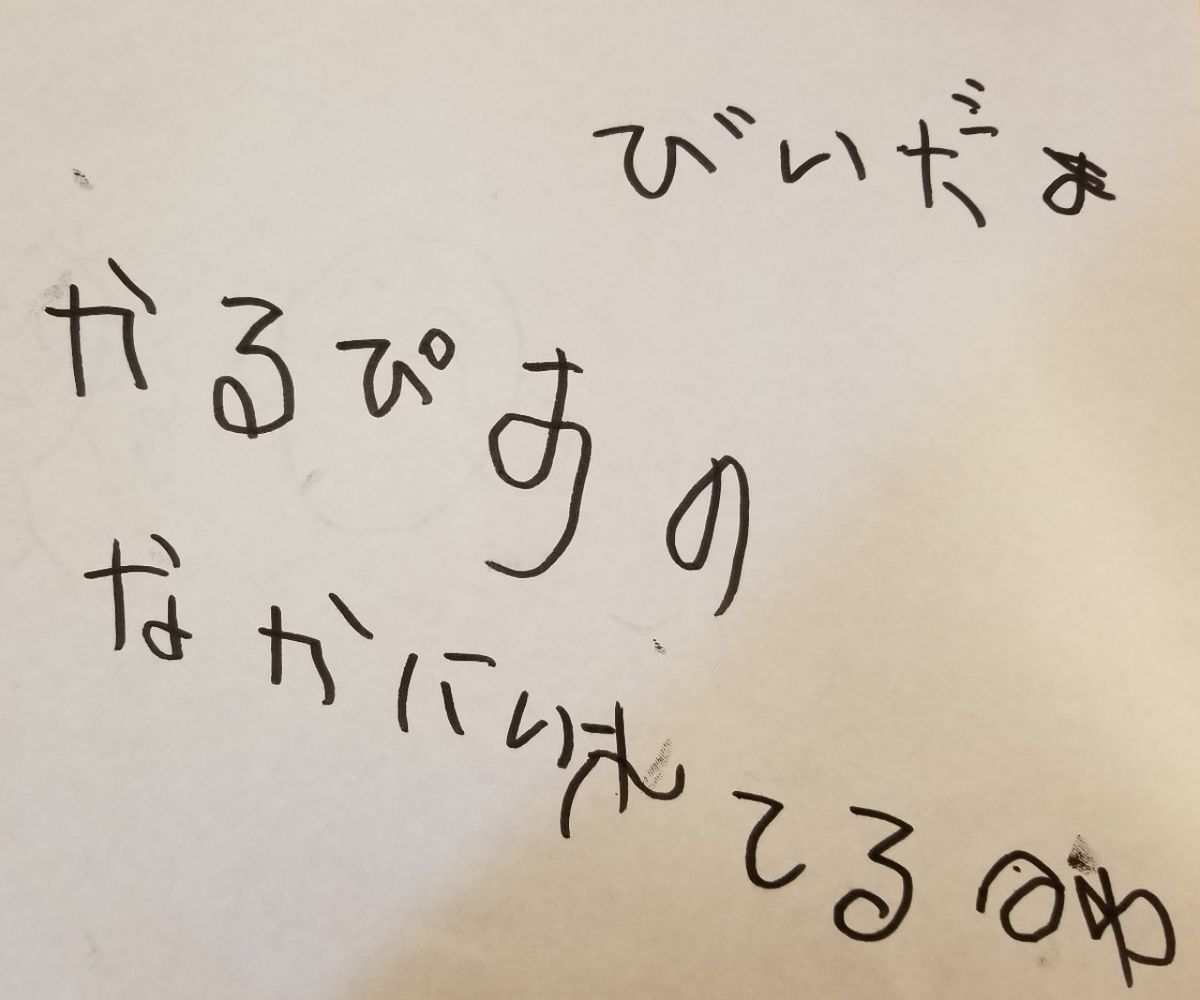 びいだま
かるぴすの
なかにいれてるのゆ